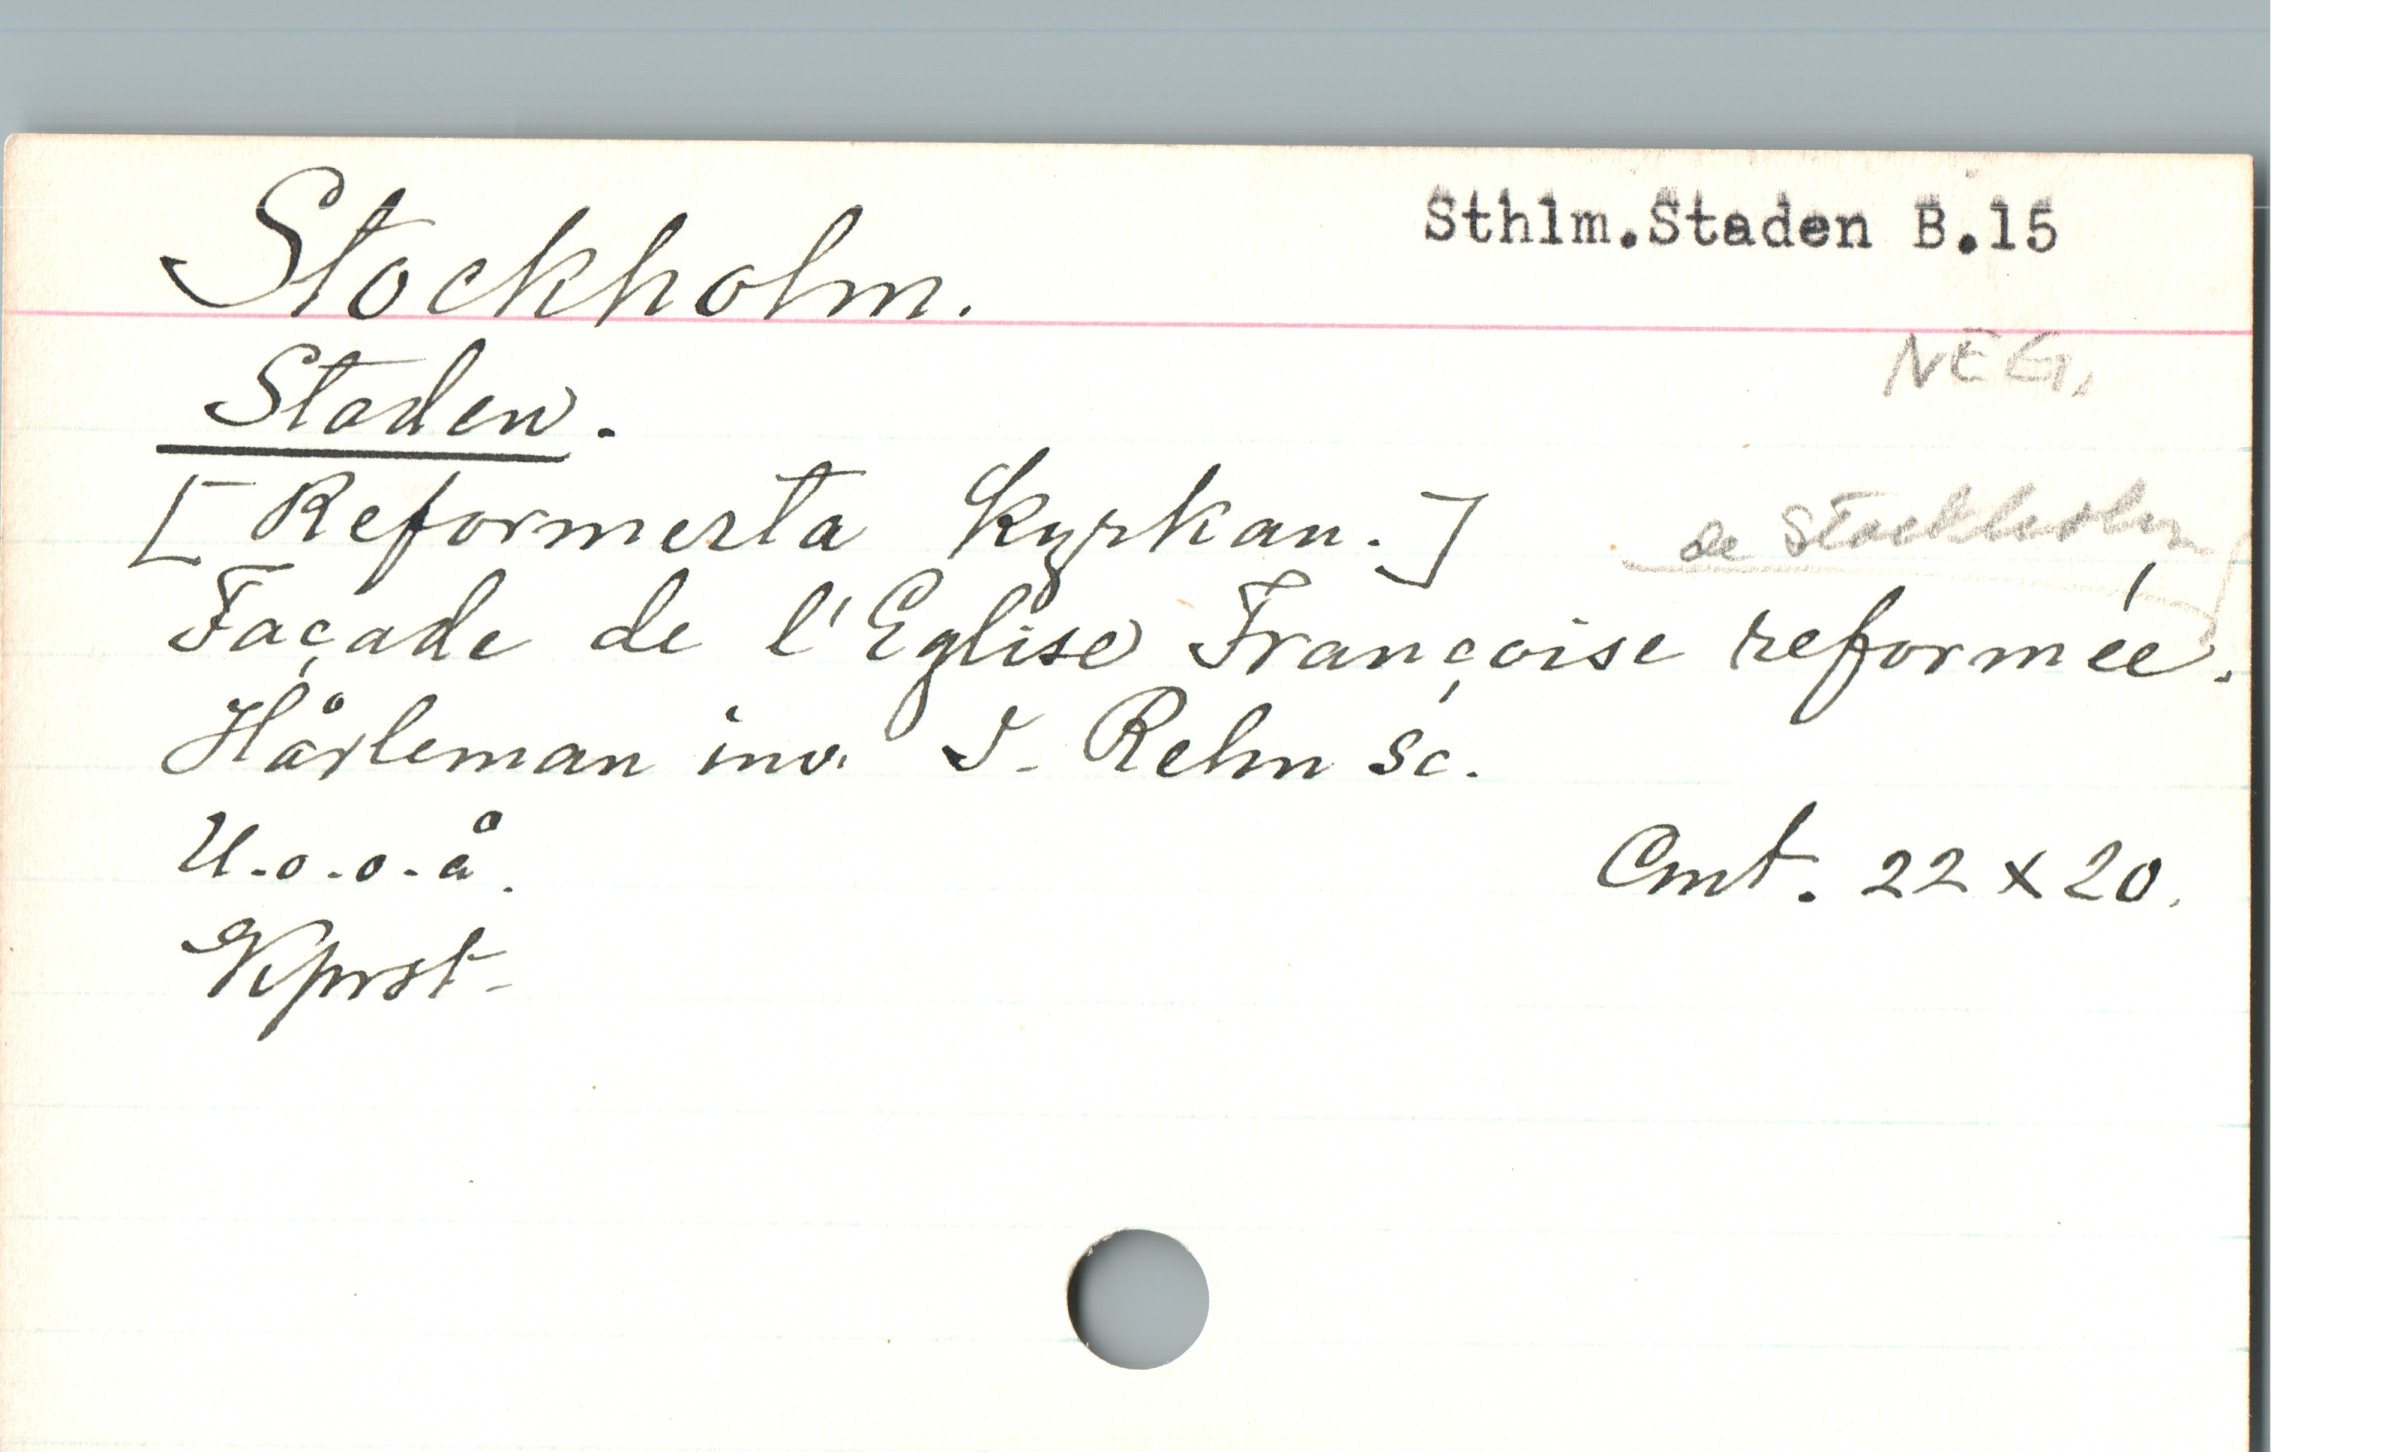 Stockholm.
Sthlm.Staden B.15
NEG.
Staden.
[Reformerta kyrkan.]
de Stockholm
Façade de l'Eglise Françoise reformée.
Hårleman inv. J. Rehn sc.
U.o.o.å.
Cmt. 22 x 20.
Kprst.